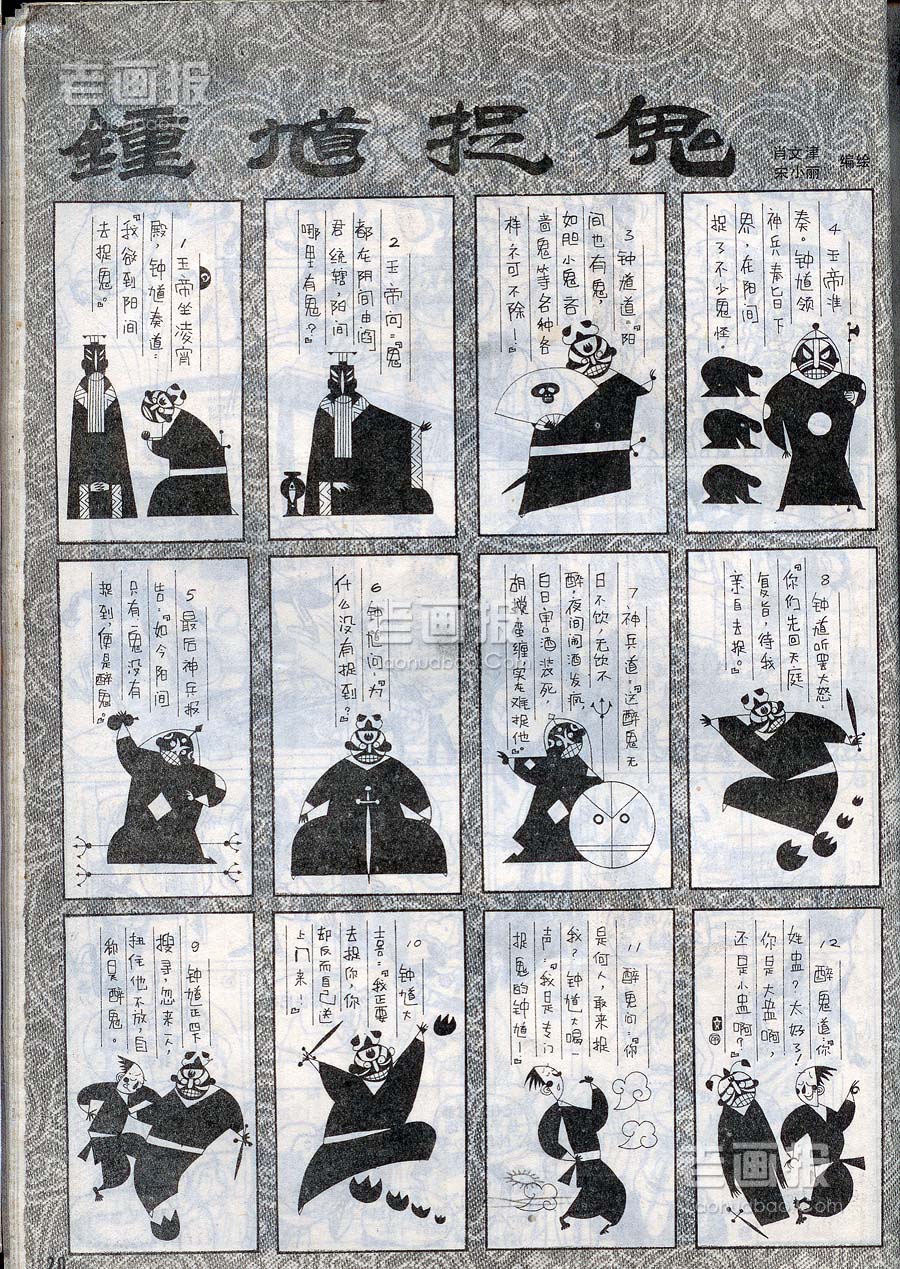 老画报
laonuabao.com
鍾馗捉鬼
肖文津
宋小丽
编绘
1 玉帝坐凌霄
殿，钟馗奏道：
“我欲到阳间
去捉鬼。”
2 玉帝问：“鬼
都在阴间由阎
君统辖，阳间
哪里有鬼？”
3 钟馗道：“阳
间也有鬼，
如胆小鬼吝
啬鬼等各种各
样不可不除！”
4 玉帝准
奏。钟馗领
神兵奉旨下
界，在阳间
捉了不少鬼怪。
5 最后神兵报
告：“如今阳间
只有一鬼没有
捉到，便是醉鬼。”
6 钟馗问：“为
什么没有捉到？”
7 神兵道：“这醉鬼无
日不饮，无饮不
醉，夜间闹酒发疯，
白日害酒装死，
胡搅蛮缠实在难捉他。”
8 钟馗听罢大怒：
“你们先回天庭
复旨，待我
亲自去捉。”
老画报
laonuabao.com
9 钟馗正四下
搜寻，忽来一人，
扭住他不放，自
称是醉鬼。
10 钟馗大
喜：“我正要
去捉你，你
却反而自己送
上门来！”
11 醉鬼问：“你
是何人，敢来捉
我？”钟馗大喝一
声：“我是专门
捉鬼的钟馗！”
12 醉鬼道：“你
姓盅？太好了！
你是大盅啊，
还是小盅啊？”
老画报
laonuabao.com
20